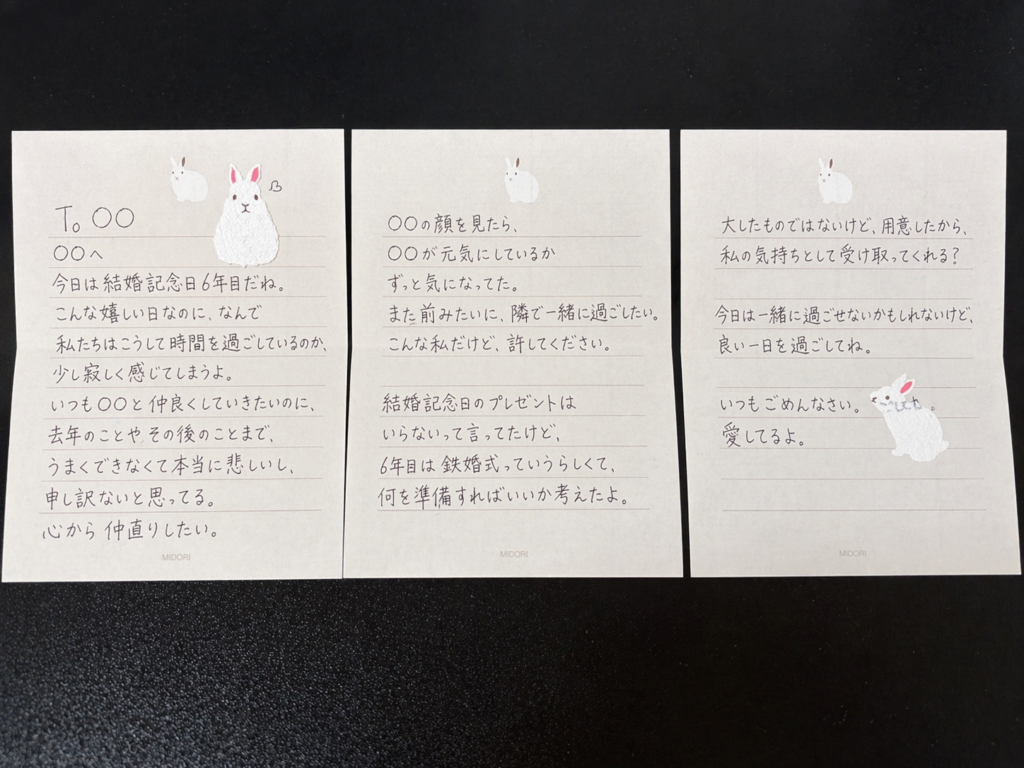 To 〇〇
〇〇へ
今日は結婚記念日6年目だね。
こんな嬉しい日なのに、なんで
私たちはこうして時間を過ごしているのか、
少し寂しく感じてしまうよ。
いつも〇〇と仲良くしていきたいのに、
去年のことやその後のことまで、
うまくできなくて本当に悲しいし、
申し訳ないと思ってる。
心から仲直りしたい。
MIDORI
〇〇の顔を見たら、
〇〇が元気にしているか
ずっと気になってた。
また前みたいに、隣で一緒に過ごしたい。
こんな私だけど、許してください。
結婚記念日のプレゼントは
いらないって言ってたけど、
6年目は鉄婚式っていうらしくて、
何を準備すればいいか考えたよ。
MIDORI
大したものではないけど、用意したから、
私の気持ちとして受け取ってくれる?
今日は一緒に過ごせないかもしれないけど、
良い一日を過ごしてね。
いつもごめんなさい。
愛してるよ。
MIDORI